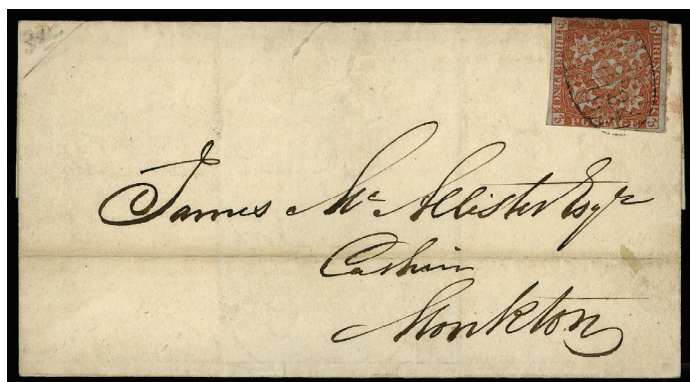 James Mc Allister Esqre
Cashier
Monkton